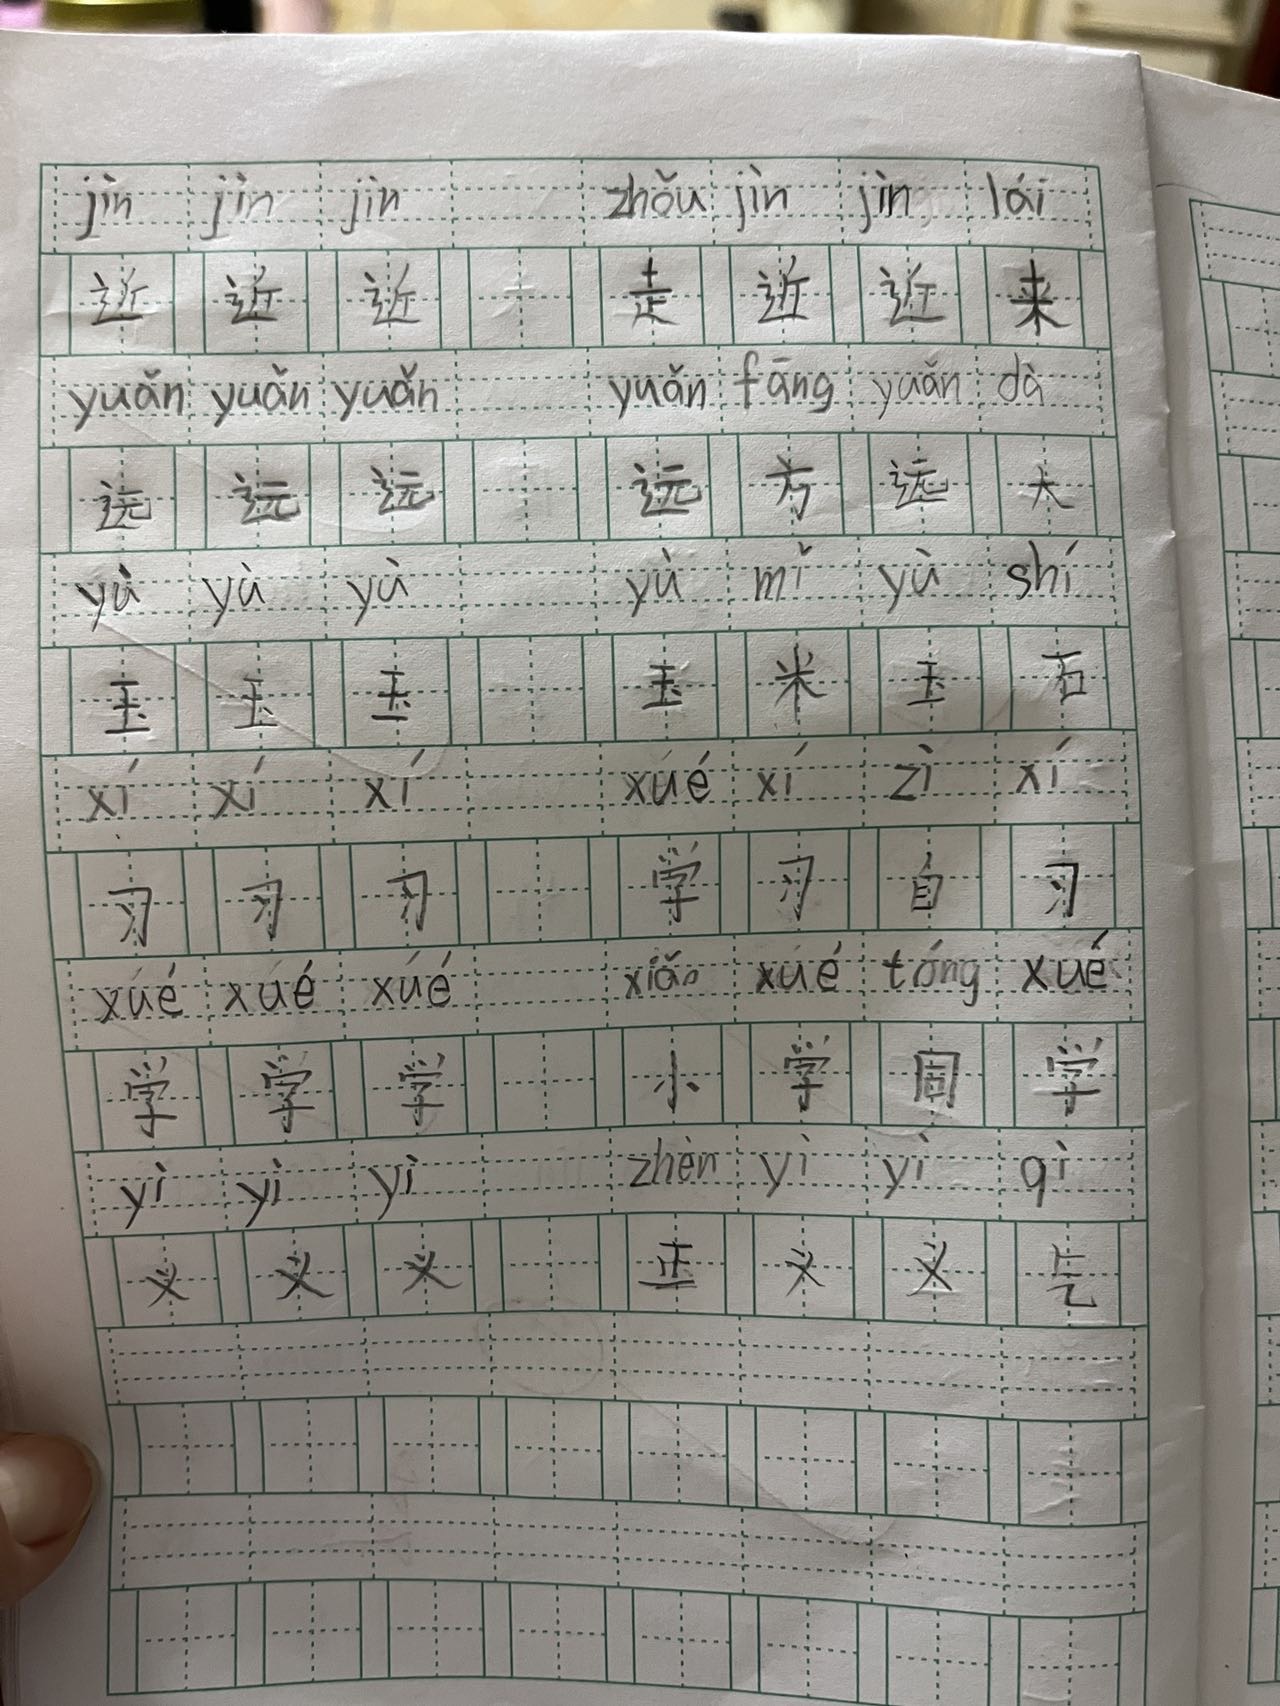 jìn jìn jìn zhǒu jìn jìn lái
近 近 近 走 近 近 来
yuǎn yuǎn yuǎn yuǎn fāng yuǎn dà
远 远 远 远 方 远 大
yù yù yù yù mǐ yù shí
玉 玉 玉 玉 米 玉 石
xí xí xí xué xí zì xí
习 习 习 学 习 自 习
xué xué xué xiǎo xué tóng xué
学 学 学 小 学 同 学
yì yì yì zhèn yì yì qì
义 义 义 正 义 义 气